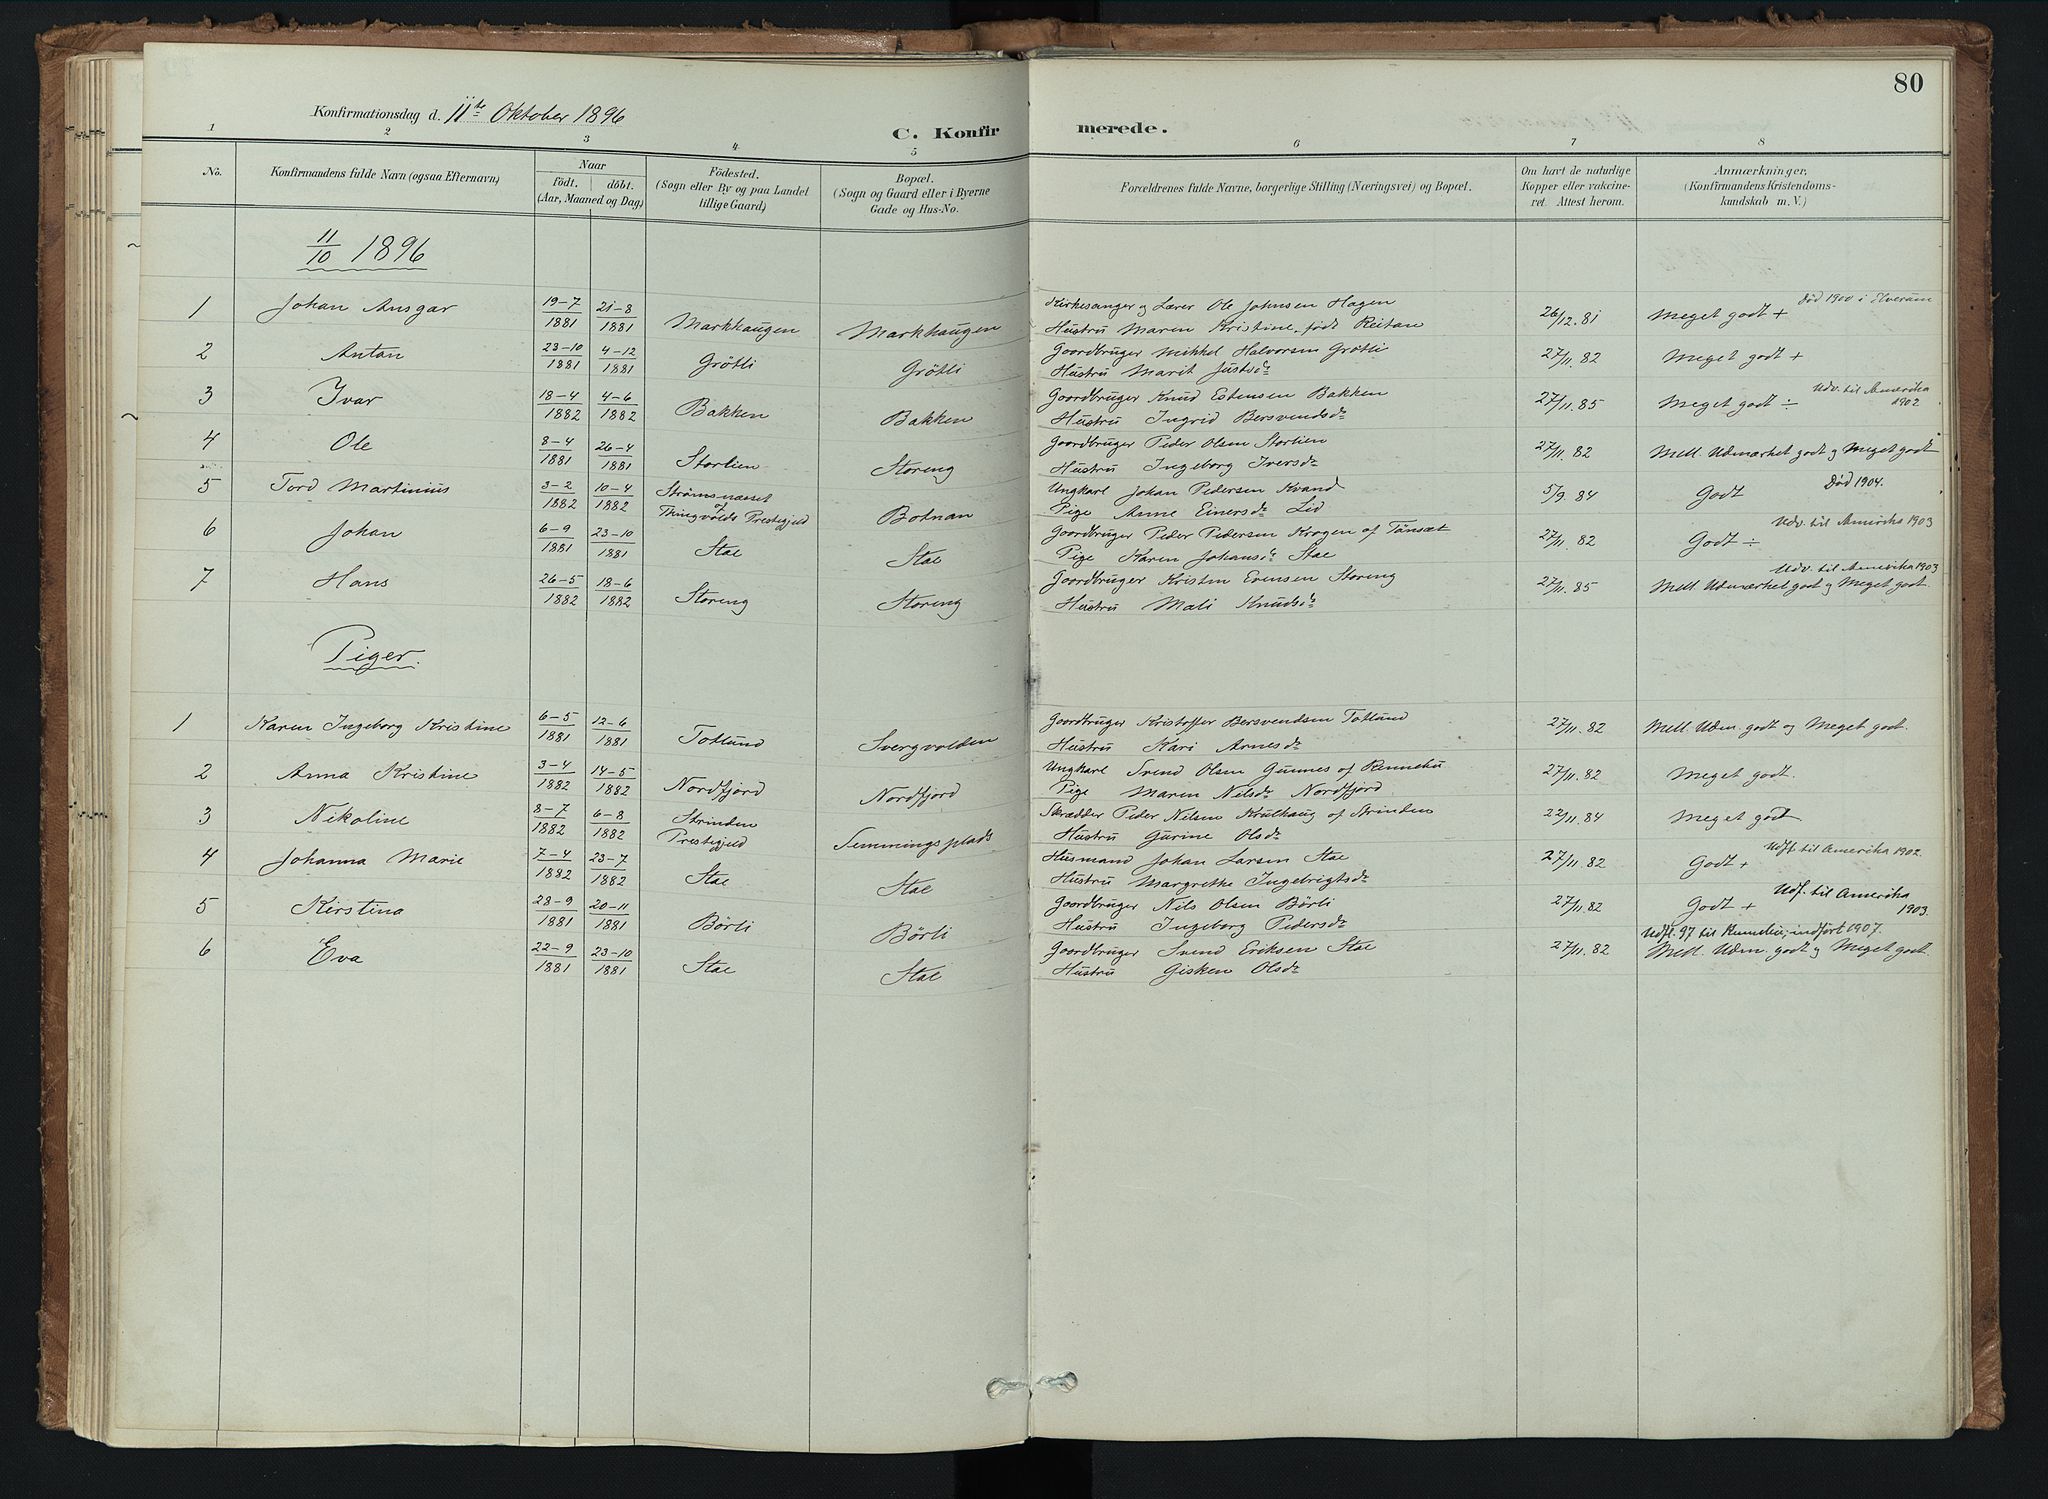 80
Konfirmationsdag d. 11te Oktober 1896
C. Konfirmerede.
1 2 3 4 5 6 7 8
No. | Konfirmandens fulde Navn (ogsaa Efternavn) | Naar født. døbt. (Aar, Maaned og Dag) | Fødested. (Sogn eller By og paa Landet tillige Gaard) | Bopæl. (Sogn og Gaard eller i Byerne Gade og Hus-No. | Forældrenes fulde Navne, borgerlige Stilling (Næringsvei) og Bopæl. | Om havt de naturlige Kopper eller vakcineret. Attest herom. | Anmærkninger, (Konfirmandens Kristendomskundskab m. V.)
11/10 1896
1 Johan Ansgar 19-7 1881 21-8 1881 Markhaugen Markhaugen Kirkesanger og Lærer Ole Johnsen Hagen Hustru Maren Kristine, født Reitan 26/12.81 Meget godt + Død 1900 i Elverum
2 Anton 23-10 1881 4-12 1881 Grötli Grötli Gaardbruger Mikkel Halvorsen Grötli Hustru Marit Justsdr 27/11.82 Meget godt +
3 Ivar 18-4 1882 4-6 1882 Bakken Bakken Gaardbruger Knud Estensen Bakken Hustru Ingrid Bersvendsdr 27/11.85 Meget godt ÷ Udv. til Amerika 1902
4 Ole 8-4 1881 26-4 1881 Storlien Storeng Gaardbruger Peder Olsen Storlien Hustru Ingeborg Iversdr 27/11.82 Mell. Udmærket godt og Meget godt
5 Tord Martinius 3-2 1882 10-4 1882 Strömsnæsset af Thingvolds Prestegjeld Botnan Ungkarl Johan Pedersen Kvand Pige Anne Einersdr Lid 5/9.84 Godt Död 1904.
6 Johan 6-9 1881 23-10 1881 Stae Stae Gaardbruger Peder Pedersen Krogen af Tönsæt Pige Karen Johansdr Stae 27/11.82 Godt ÷ Udv. til Amerika 1903
7 Hans 26-5 1882 18-6 1882 Storeng Storeng Gaardbruger Kristen Evensen Storeng Hustru Mali Knudsdr 27/11.85 Mell. Udmærket godt og Meget godt. Udv. til Amerika 1903
Piger.
1 Karen Ingeborg Kristine 6-5 1881 12-6 1881 Totlund Svergvolden Gaardbruger Kristoffer Bersvendsen Totlund Hustru Kari Arnesdr 27/11.82 Mell. Udm. godt og Meget godt.
2 Anna Kristine 3-4 1882 14-5 1882 Nordfjord Nordfjord Ungkarl Svend Olsen Gunnes af Rennebu Pige Maren Nilsdr Nordfjord 27/11.82 Meget godt.
3 Nikoline 8-7 1882 6-8 1882 Strinden Prestegjeld Semmingsplads Skrædder Peder Nilsen Krulhaug af Strinden Hustru Gurine Olsdr 22/11.84 Meget godt
4 Johanna Marie 7-4 1882 23-7 1882 Stae Stae Husmand Johan Larsen Stae Hustru Margrethe Ingebrigtsdr 27/11.82 Godt + Udfl. til Amerika 1902.
5 Kirstina 23-9 1881 20-11 1881 Börli Börli Gaardbruger Nils Olsen Börli Hustru Ingeborg Pedersdr 27/11.82 Godt + Udf. til Amerika 1903.
6 Eva 22-9 1881 23-10 1881 Stae Stae Gaardbruger Svend Eriksen Stae Hustru Gisken Olsdr 27/11.82 Udfl. 97 til Rennebu; indfört 1907. Mell. Udm. godt og Meget godt.